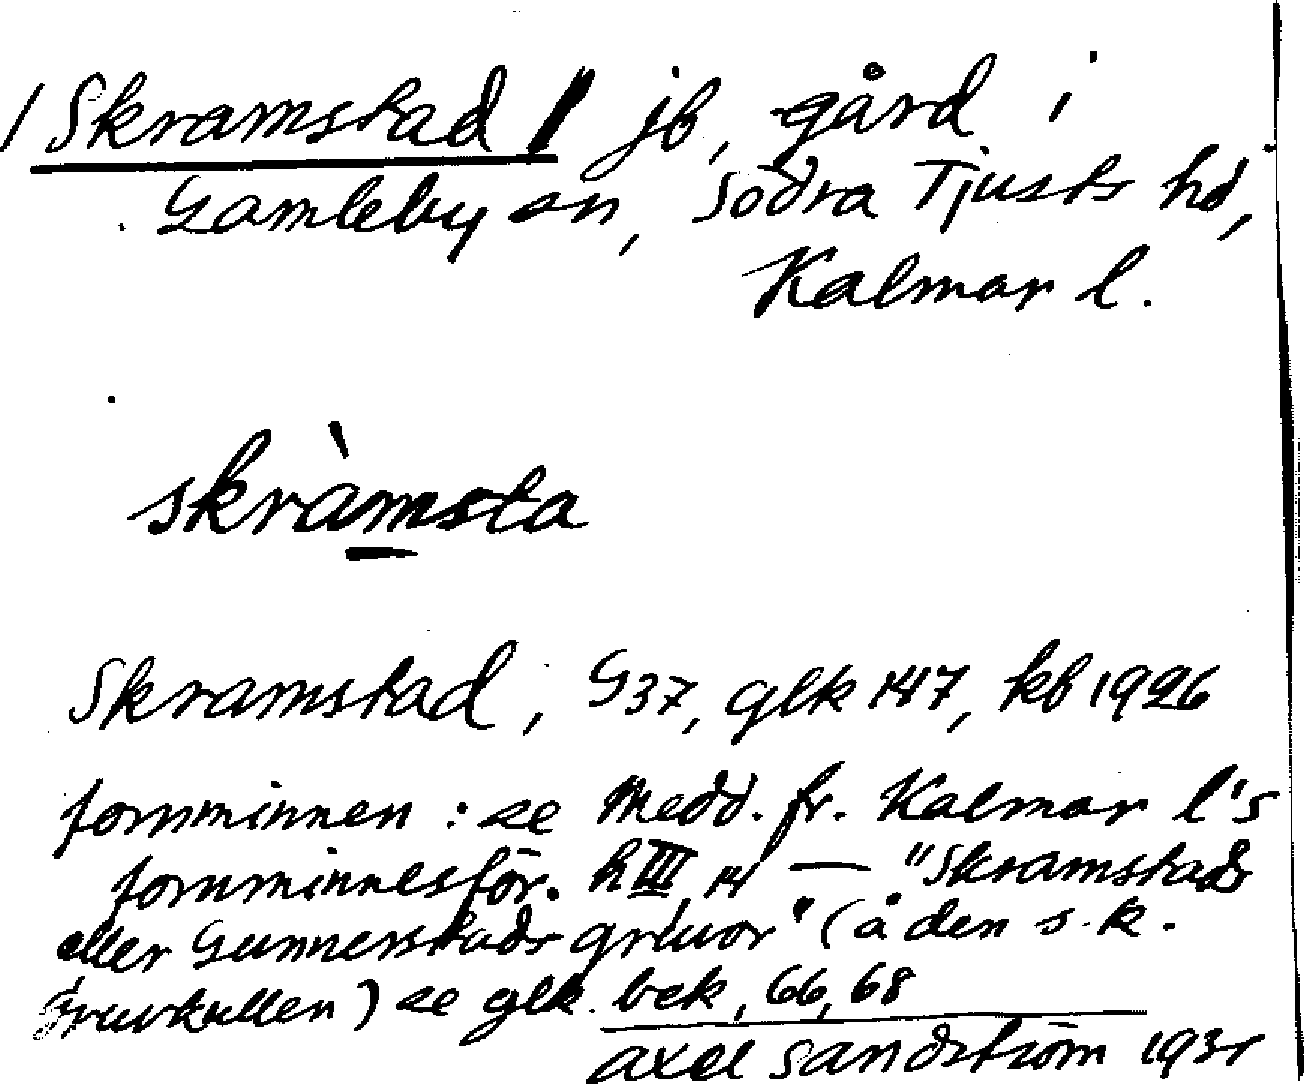 /Skramstad/ jb, gård i
Gamleby sn, Södra Tjusts hd,
Kalmar l.
skràmsta
Skramstad, G37, glk 147, kb 1926
fornminnen : se Medd. fr. Kalmar l's
fornminnesför. h III, 14 — "Skramstads
eller Gunnerstads gruvor" (å den s.k.
Gruvkullen) se glk. bek, 66, 68
Axel Sandström